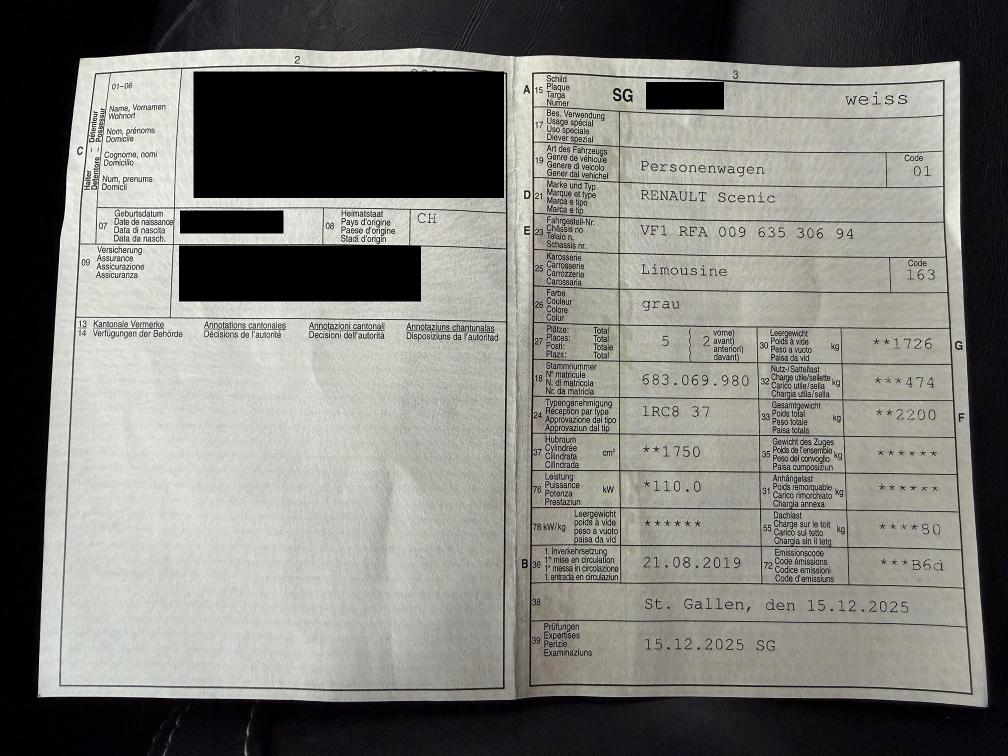 2
01-06
Name, Vornamen
Wohnort
Nom, prénoms
Domicile
Cognome, nomi
Domicilio
Num, prenums
Domicil
C
Halter – Détenteur
Detentore – Possessur
07
Geburtsdatum
Date de naissance
Data di nascita
Data da nasch.
08
Heimatstaat
Pays d'origine
Paese d'origine
Stadi d'origin
CH
09
Versicherung
Assurance
Assicurazione
Assicuranza
13
14
Kantonale Vermerke
Verfügungen der Behörde
Annotations cantonales
Décisions de l'autorité
Annotazioni cantonali
Decisioni dell'autorità
Annotaziuns chantunalas
Disposiziuns da l'autoritad
3
A
15
Schild
Plaque
Targa
Numer
SG
weiss
17
Bes. Verwendung
Usage spécial
Uso speciale
Diever spezial
19
Art des Fahrzeugs
Genre de véhicule
Genere di veicolo
Gener dal vehichel
Personenwagen
Code
01
D
21
Marke und Typ
Marque et type
Marca e tipo
Marca e tip
RENAULT Scenic
E
23
Fahrgestell-Nr.
Châssis no
Telaio n.
Schassis nr.
VF1 RFA 009 635 306 94
25
Karosserie
Carrosserie
Carrozzeria
Carossaria
Limousine
Code
163
26
Farbe
Couleur
Colore
Colur
grau
27
Plätze: Total
Places: Total
Posti: Totale
Plazs: Total
5
( 2
vorne)
avant)
anteriori)
davant)
30
Leergewicht
Poids à vide
Peso a vuoto
Paisa da vid
kg
**1726
G
18
Stammnummer
N° matricule
N. di matricola
Nr. da matricla
683.069.980
32
Nutz-/Sattellast
Charge utile/sellette
Carico utile/sella
Chargia utila/sella
kg
***474
24
Typengenehmigung
Réception par type
Approvazione del tipo
Approvaziun dal tip
1RC8 37
33
Gesamtgewicht
Poids total
Peso totale
Paisa totala
kg
**2200
F
37
Hubraum
Cylindrée
Cilindrata
Cilindrada
cm³
**1750
35
Gewicht des Zuges
Poids de l'ensemble
Peso del convoglio
Paisa cumposiziun
kg
******
76
Leistung
Puissance
Potenza
Prestaziun
kW
*110.0
31
Anhängelast
Poids remorquable
Carico rimorchiato
Chargia annexa
kg
******
78 kW/kg
Leergewicht
poids à vide
peso a vuoto
paisa da vid
******
55
Dachlast
Charge sur le toit
Carico sul tetto
Chargia sin il tetg
kg
****80
B
36
1. Inverkehrsetzung
1re mise en circulation
1a messa in circolazione
1. entrada en circulaziun
21.08.2019
72
Emissionscode
Code émissions
Codice emissioni
Code d'emissiuns
***B6d
38
St. Gallen, den 15.12.2025
39
Prüfungen
Expertises
Perizie
Examinaziuns
15.12.2025 SG